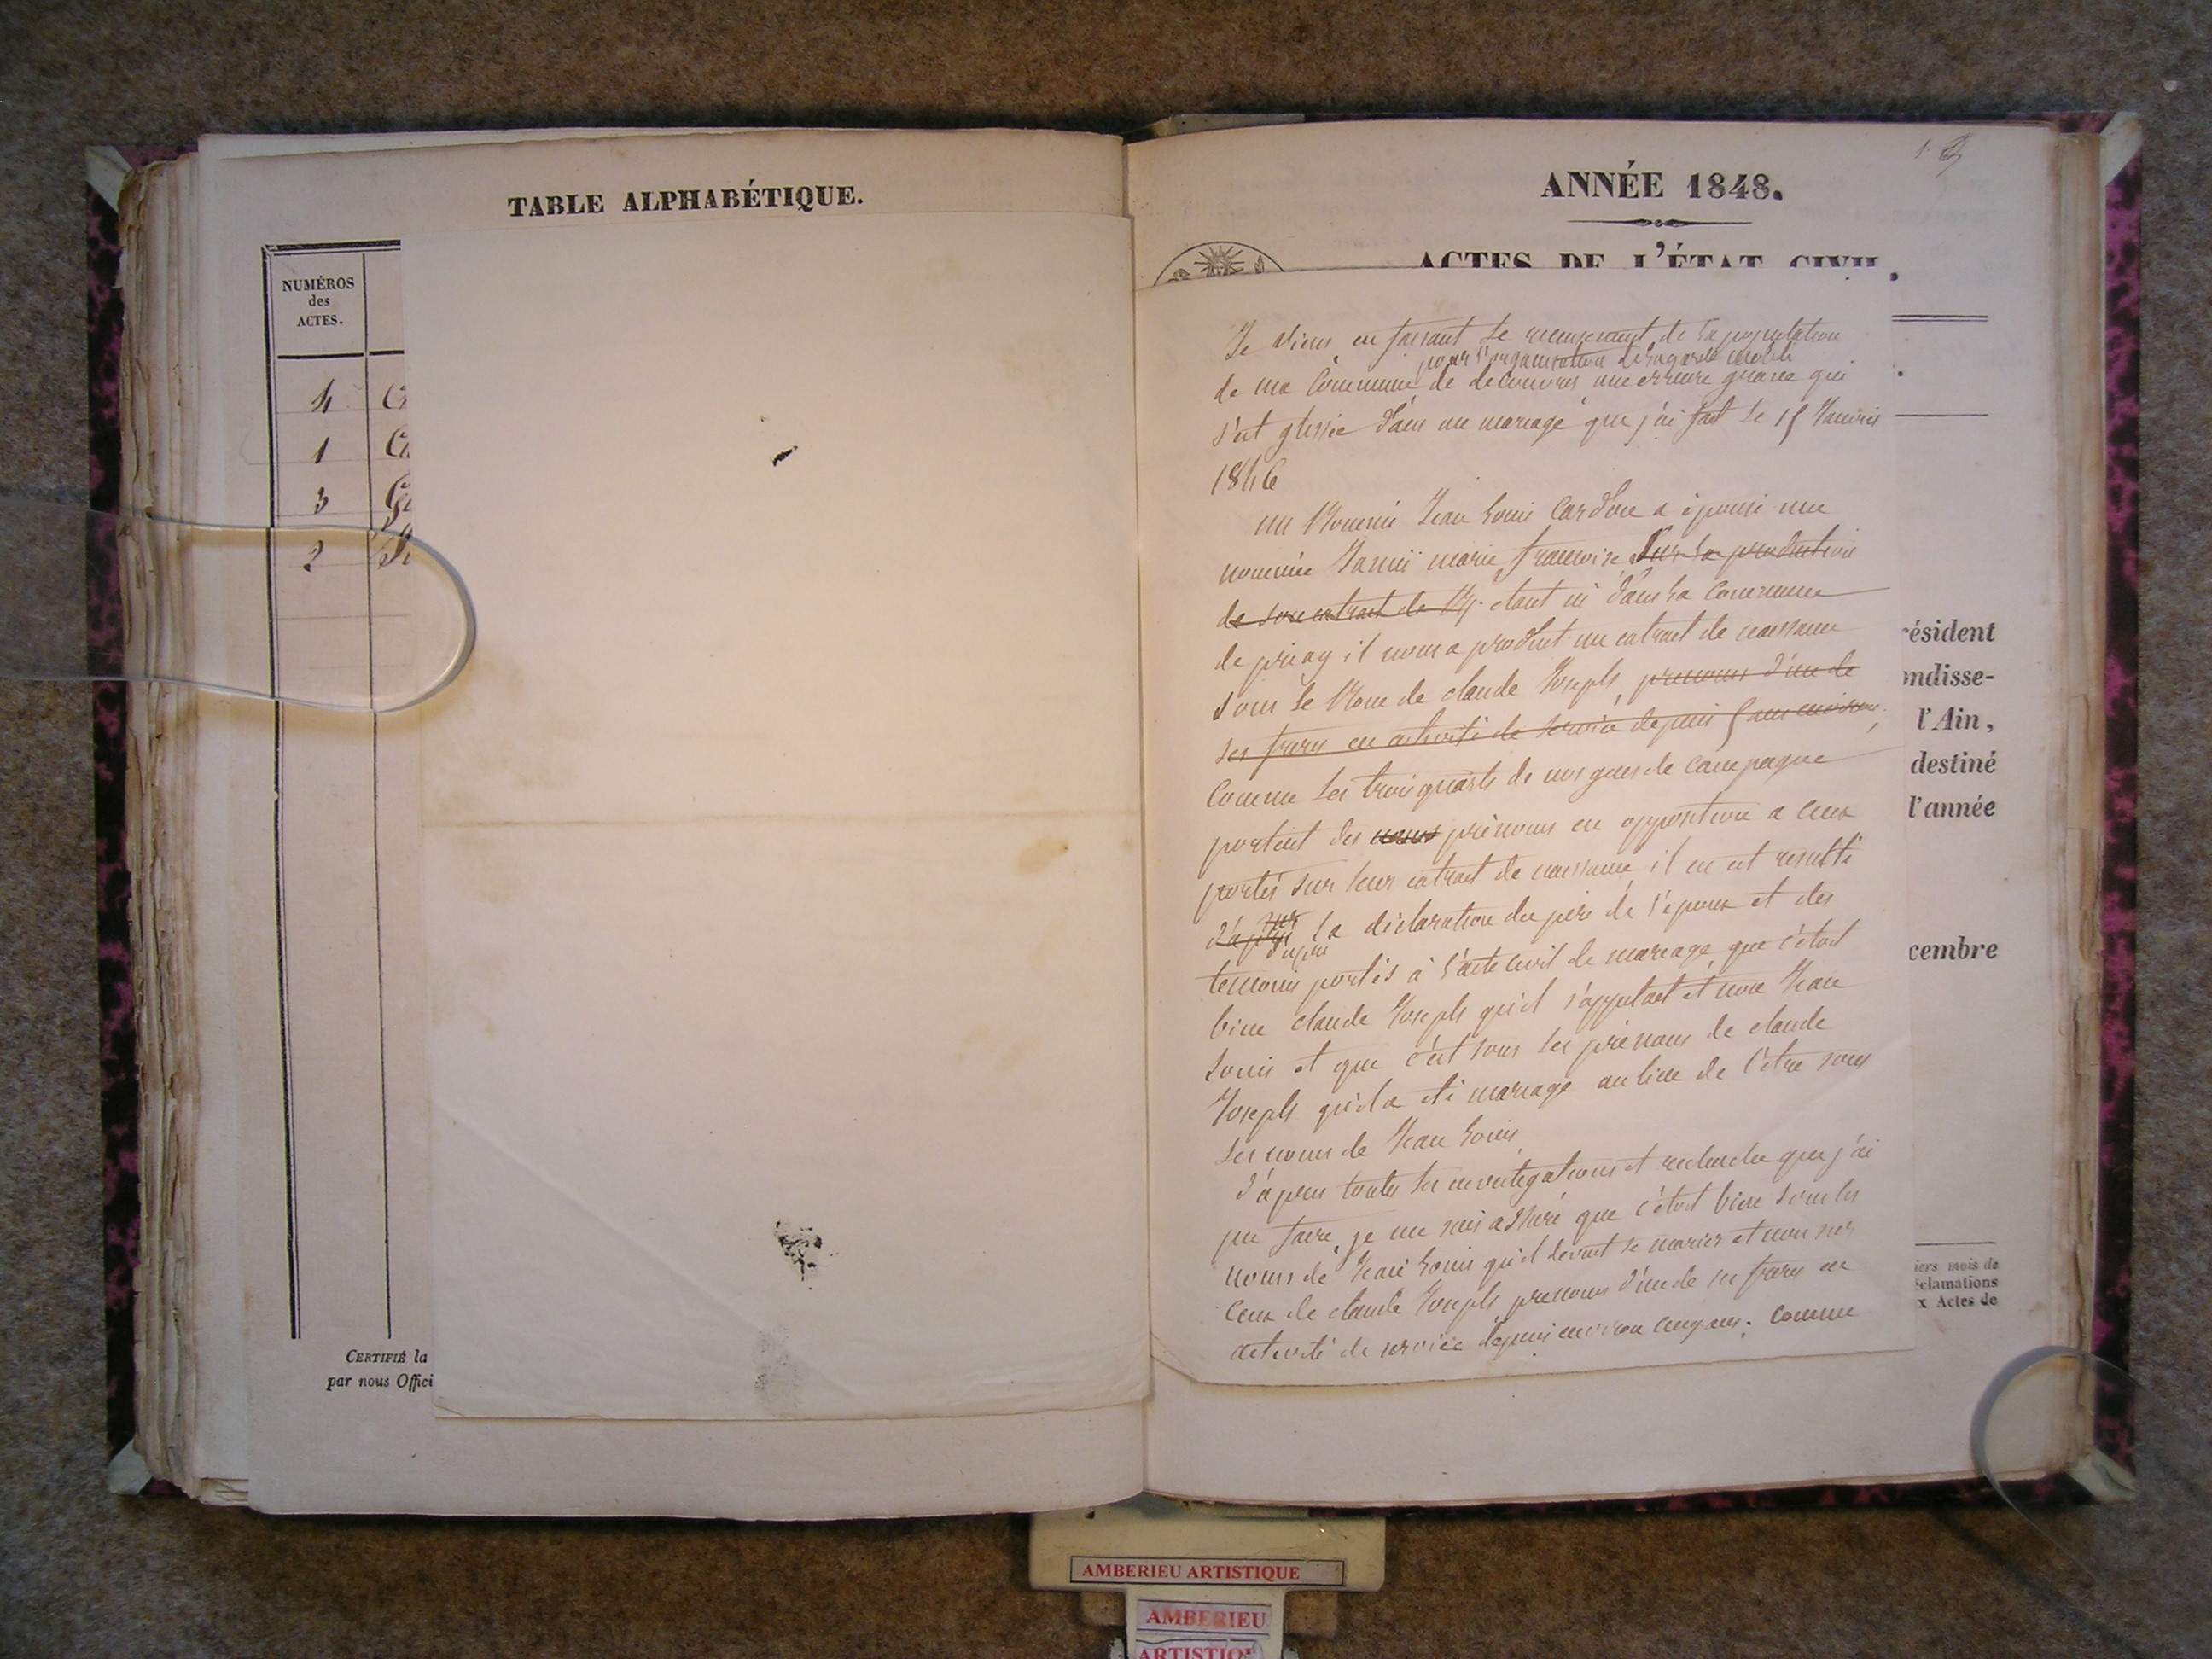 TABLE ALPHABÉTIQUE.
NUMÉROS
des
ACTES.
4
1
3
2
CERTIFIÉ la
par nous Offici
ANNÉE 1848.
ACTES DE L'ÉTAT CIVIL.
Je viens en faisant le recensement de la population
pour l'organisation de la garde mobile
de ma Commune de decouvrir une erreure grave qui
s'est glissée dans un mariage que j'ai fait le 15 Janvier
1846
un Nommé Jean Louis Cardon a épousé une
nommée marie francoise Sur la production
de son extrait de N. etant né dans la Commune
de priay il nous a produit un extrait de naissance
sous le Nom de claude Joseph, prenoms d'un de
ses freres en activité de service depuis 5 ans environ,
Comme les trois quarts de nos gens de Campagne
portent des noms prénoms en opposition a ceux
portés sur leur extrait de naissance il en est resulté
sur
d'après la déclaration du père de l'epoux et des
d'apres
temoins portés à l'acte civil de mariage, que c'étoit
bien claude Joseph qu'il s'appelait et non Jean
Louis et que c'est sous les prénoms de claude
Joseph qu'il a été mariage au lieu de l'être sous
les noms de Jean Louis
d'apres toutes les investigations et recherches que j'ai
pu faire, je me suis assuré que c'étoit bien sous les
noms de Jean Louis qu'il devait se marier et non sur
ceux de claude Joseph prenoms d'un de ses freres en
activité de service depuis environ cinq ans; comme
résident
ondisse-
l'Ain,
destiné
l'année
cembre
iers mois de
éclamations
x Actes de
AMBERIEU ARTISTIQUE
AMBERIEU
ARTISTIQ